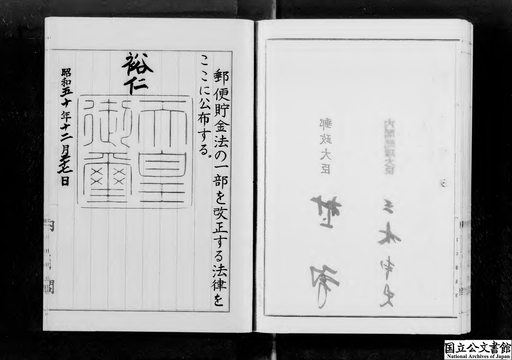 郵便貯金法の一部を改正する法律を
ここに公布する。
裕仁
天皇御璽
昭和五十年十二月 日
内閣
内閣総理大臣
郵政大臣
国立公文書館
National Archives of Japan